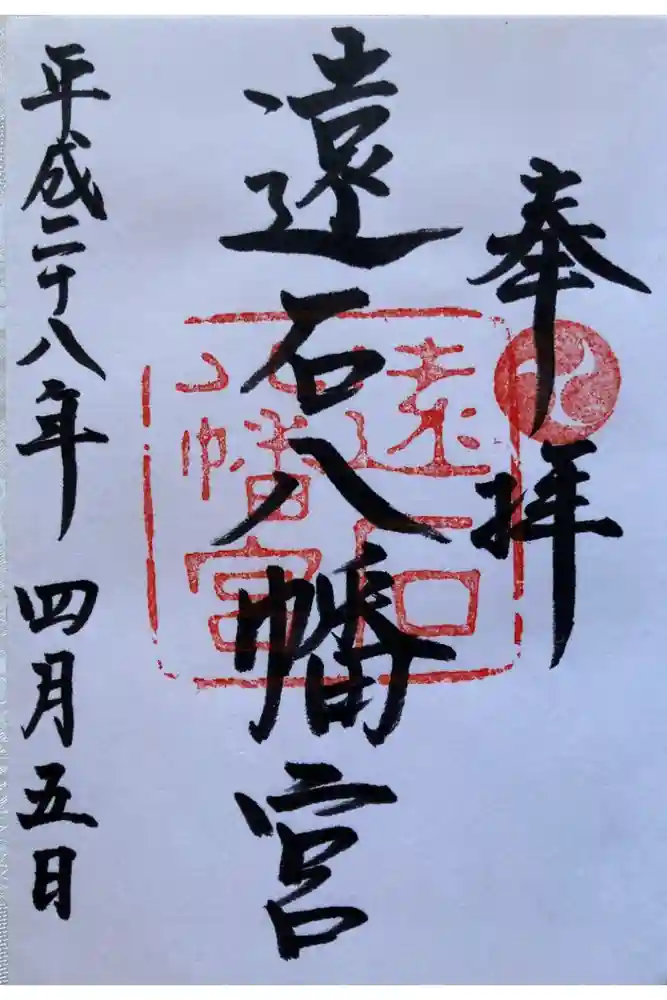 奉拝
遠石八幡宮
遠石八幡宮
平成二十八年 四月五日